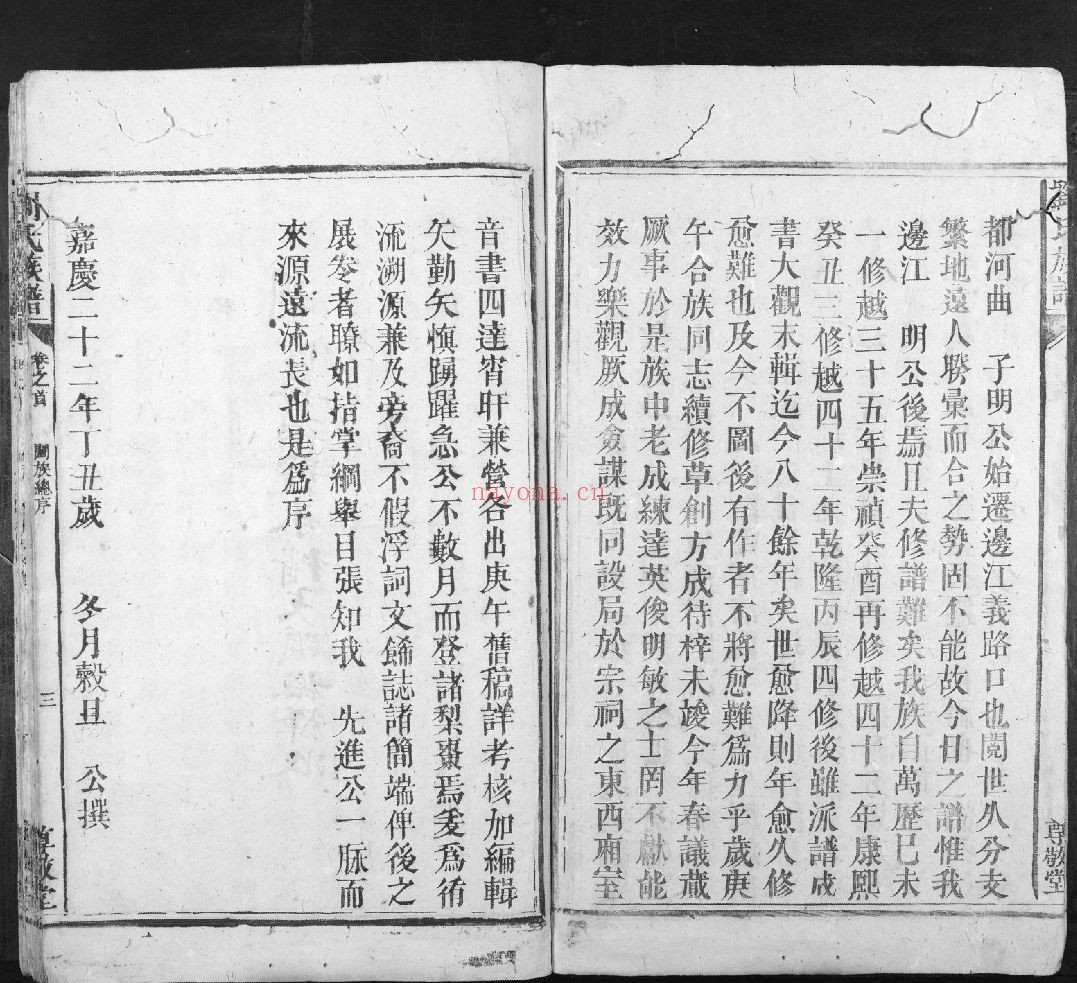 都河曲　子明公始遷邊江義路口也閱世久分支
繁地遠人睽彙而合之勢固不能故今日之譜惟我
邊江　明公後焉且夫修譜難矣我族自萬歷己未
一修越三十五年崇禎癸酉再修越四十二年康熙
癸丑三修越四十二年乾隆丙辰四修後雖派譜成
書大觀末輯迄今八十餘年矣世愈降則年愈久修
愈難也及今不圖後有作者不將愈難爲力乎歲庚
午合族同志續修草創方成待梓未竣今年春議蕆
厥事於是族中老成練達英俊明敏之士罔不獻能
效力樂觀厥成僉謀既同設局於宗祠之東西廂室
尊敬堂
音書四達宵旰兼營各出庚午舊稿詳考核加編輯
矢勤矢慎踴躍急公不數月而登諸梨棗焉爰爲循
流溯源兼及旁裔不假浮詞文餙誌諸簡端俾後之
展券者瞭如指掌綱舉目張知我　先進公一脉而
來源遠流長也是爲序
嘉慶二十二年丁丑歲　冬月穀旦　公撰
氏族譜　卷之首　闔族總序　三　尊敬堂
nayona.cn